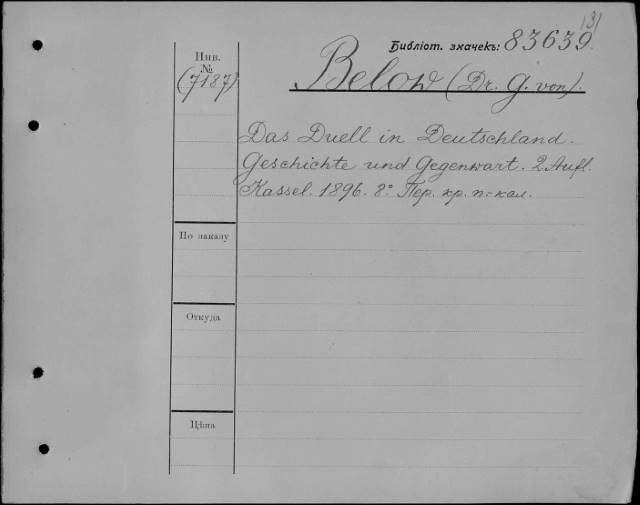 [3]
Библіот. значекъ: 83639.
Инв.
№
(7187)
Below (Dr. G. von).
Das Duell in Deutschland.
Geschichte und Gegenwart. 2 Aufl.
Kassel. 1896. 8° Пер. кр. п.-кал.
По заказу
Откуда
Цѣна